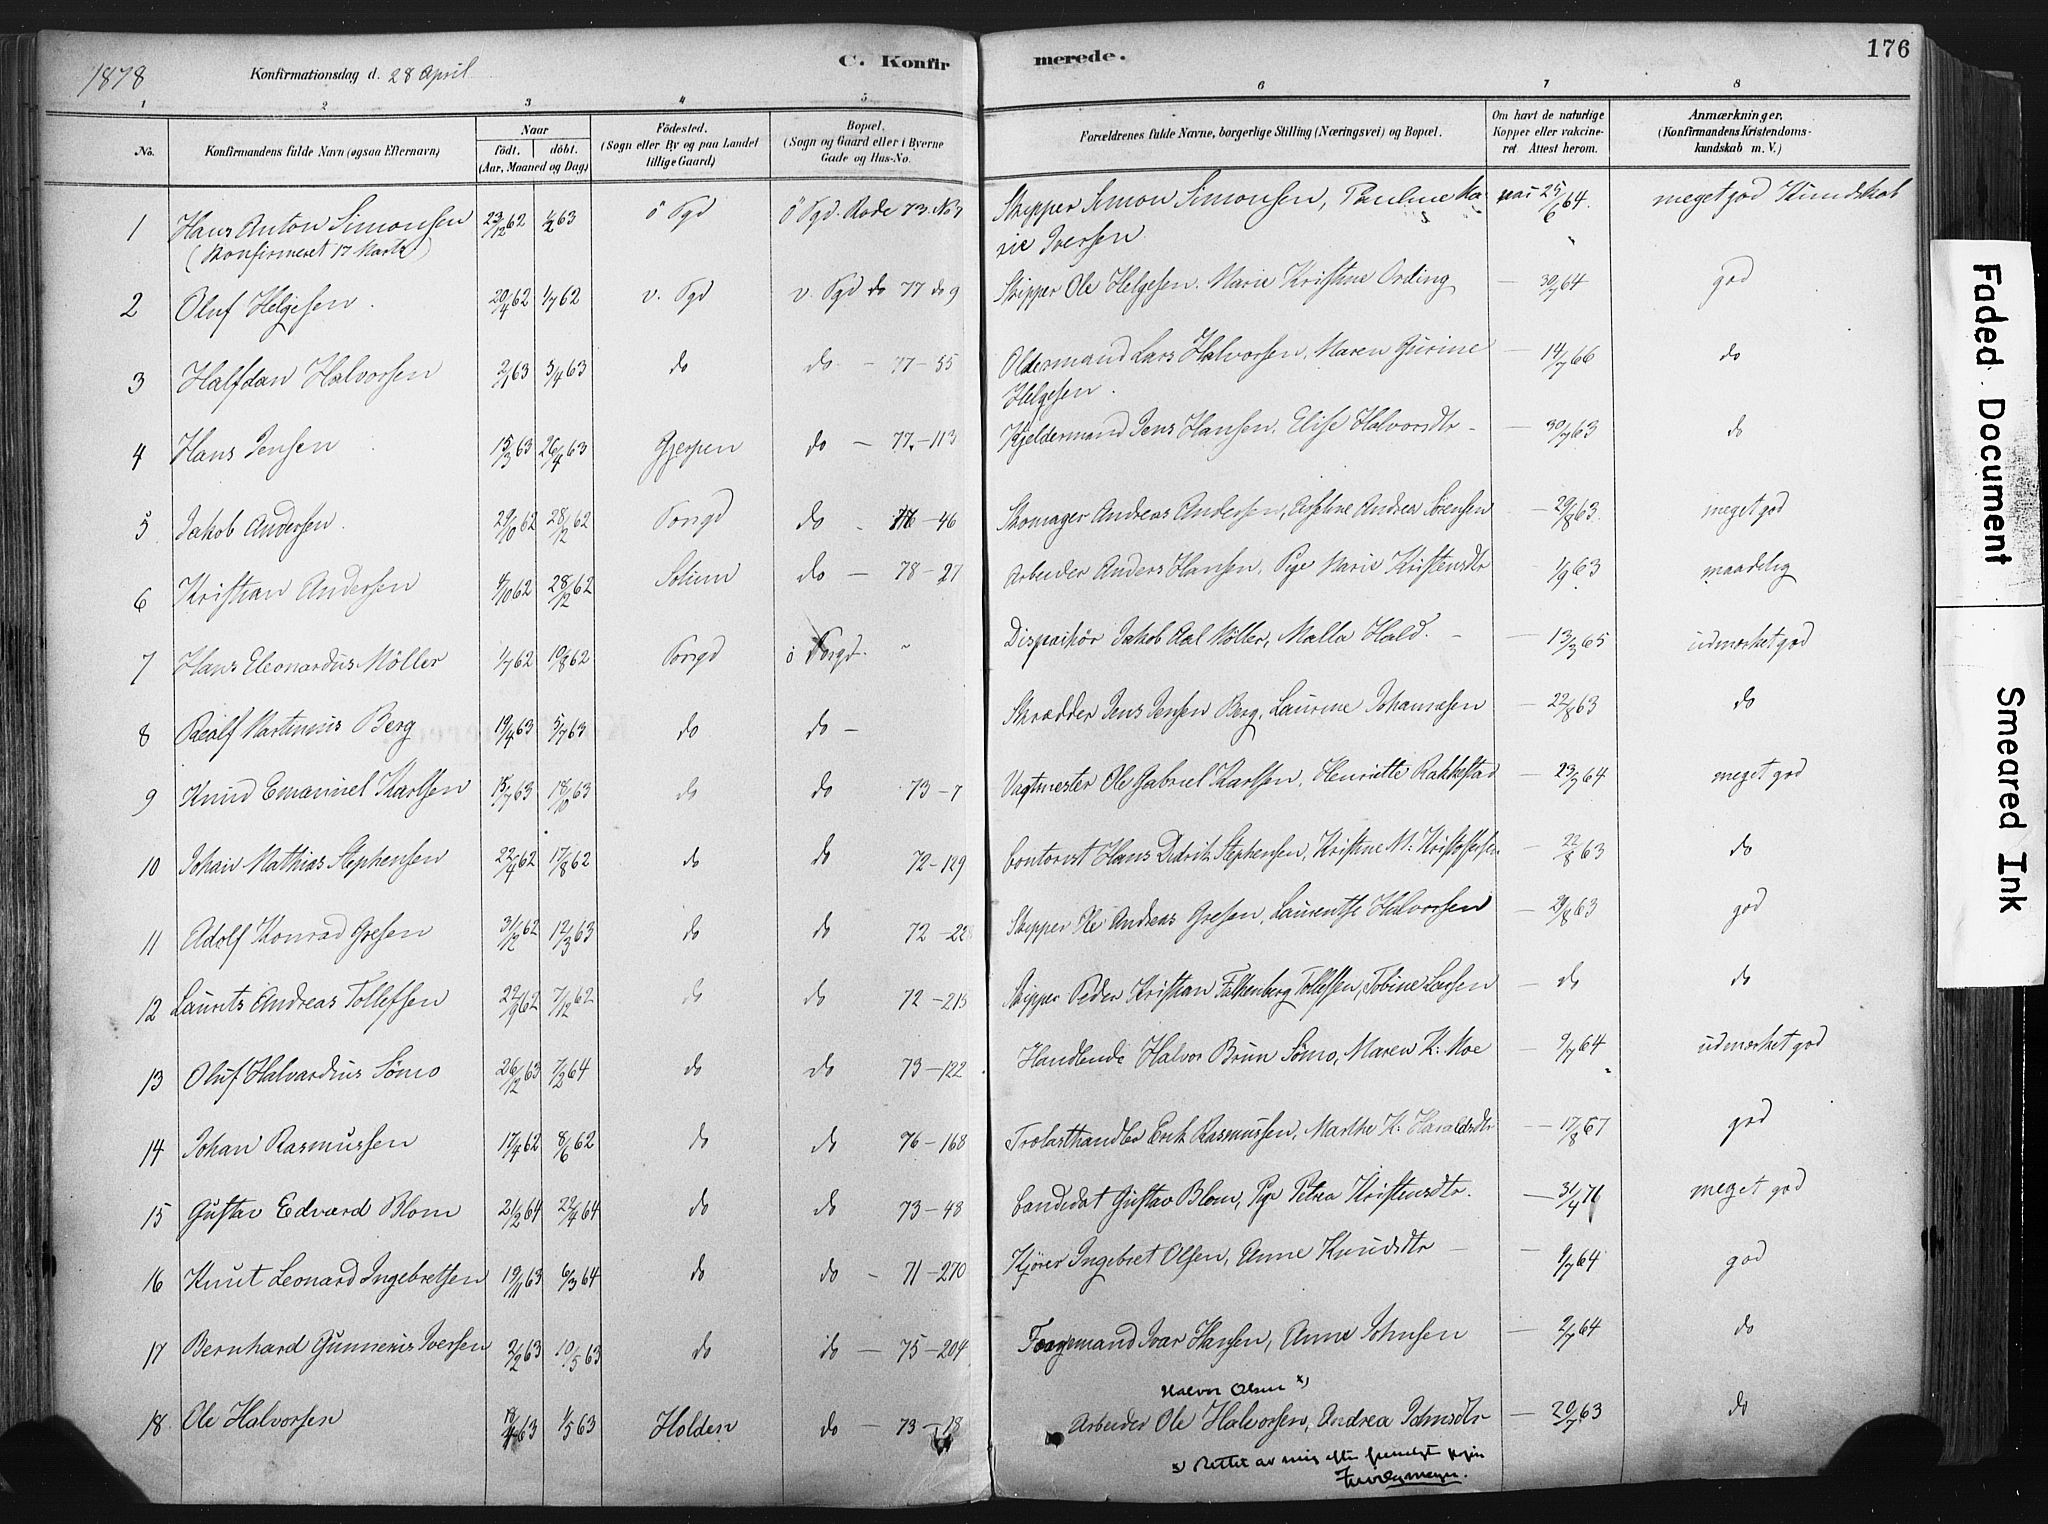 1878 Konfirmationsdag d. 28 April C. Konfirmerede. 176
1 2 3 4 5 6 7 8
No. Konfirmandens fulde Navn (ogsaa Efternavn) Naar födt. döbt. (Aar, Maaned og Dag) Födested. (Sogn eller By og paa Landet tillige Gaard) Bopæl. (Sogn og Gaard eller i Byerne Gade og Hus-No. Forældrenes fulde Navne, borgerlige Stilling (Næringsvei) og Bopæl. Om havt de naturlige Kopper eller vakcineret. Attest herom. Anmærkninger, (Konfirmandens Kristendomskundskab m. V.)
1 Hans Anton Simonsen 23/12 62 1/2 63 ö Pgd ö Pgd. Rode 73. No 7 Skipper Simon Simonsen, Pauline Ka- 25/6 64. meget god Kundskab
(Konfirmeret 17 Marts) rie Iversen
2 Oluf Helgesen 20/4 62 1/7 62 v. Pgd v. Pgd do 77 do 9 Skipper Ole Helgesen. Marie Kristine Ording — 30/7 64 god
3 Halfdan Halvorsen 2/1 63 5/4 63 do do — 77 — 55 Oldermand Lars Halvorsen, Maren Gurine — 14/7 66 do
Helgesen.
4 Hans Jensen 15/3 63 26/4 63 Gjerpen do — 77 — 113 Kjeldermand Jens Hansen. Elise Halvorsdtr — 30/7 63 do
5 Jakob Andersen. 29/10 62 28/12 62 Porsgd do — 46 Skomager Andreas Andersen, Andrea Sörensen — 29/8 63. meget god
6 Kristian Andersen /10 62 28/12 62 Solum do — 78 — 27 Arbeider Anders Hansen, Pige Marie Kristensdtr 1/9 63 maadelig
7 Hans Eleonardus Möller 1/7 62 10/8 62 Porsgd ö Porsgd. Dispachör Jakob Aal Möller, Malla Hald. — 13/3 65 udmærket god
8 Rolf Martinius Berg 19/4 63 5/7 63 do do — Skrædder Jens Jensen Berg, Laurine Johannesen — 22/8 63 do
9 Knud Emanuel Karlsen 15/7 63 18/10 63 do do 73 — 7 Vagtmester Ole Gabriel Karlsen, Henriette Rakkestad — 23/7 64 meget god
10 Johan Mathias Stephensen 22/4 62 17/8 62 do do 72 — 129 Contorist Hans Didrik Stephensen, Kristine M. Kristoffersen — 22/8 63 do
11 Adolf Konrad Gresen 31/12 62 12/3 63 do do 72 — 228 Skipper Ole Andreas Gresen, Laurentse Halvorsen — 29/8 63 god
12 Laurits Andreas Tollefsen 22/9 62 7/12 62 do do 72 — 215 Skipper Peder Kristian Falkenberg Tollefsen, Tobine Larsen — do do
13 Oluf Halvardius Sömo 26/12 63 7/2 64 do do 73 — 122 Handlende Halvor Brun Sömo, Maren K. Moe — 9/7 64 udmærket god
14 Johan Rasmussen 17/4 62 8/6 62 do do 76 — 168 Trolasthandler Erik Rasmussen, Marthe K. Haraldsdtr — 17/8 67 god
15 Gustav Edvard Blom 21/2 64 22/4 64 do do 73 — 48 Candidat Gustav Blom, Pige Petrea Kristensdtr. — 31/ 71 meget god
16 Knut Leonard Ingebretsen 19/11 63 6/3 64 do do — 71 — 270 Kjörer Ingebret Olsen, Anne Knudsdtr — 9/7 64 god
17 Bernhard Gunnerius Iversen 2/2 63 10/5 63 do do — 75 — 204 Iver Hansen, Anne Johnsen — 2/7 64 do
Halvor Olsen x)
18. Ole Halvorsen 18/ 63 1/5 63 Holden do — 73 — 18 Arbeider Ole Halvorsen, Andrea Johnsdtr — 20/7 63 do
x) Rettet av mig efter
Faded Document
Smeared Ink